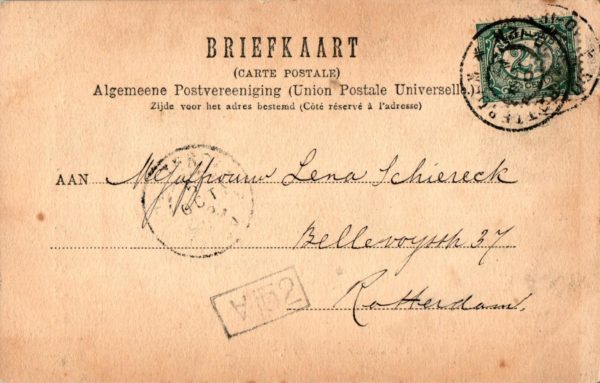 BRIEFKAART
(CARTE POSTALE)
Algemeene Postvereeniging (Union Postale Universelle.)
Zijde voor het adres bestemd (Côté réservé à l'adresse)
AAN Mejufvrouw Lena Schiereck
Bellevoysstr 37
Rotterdam.
OCT